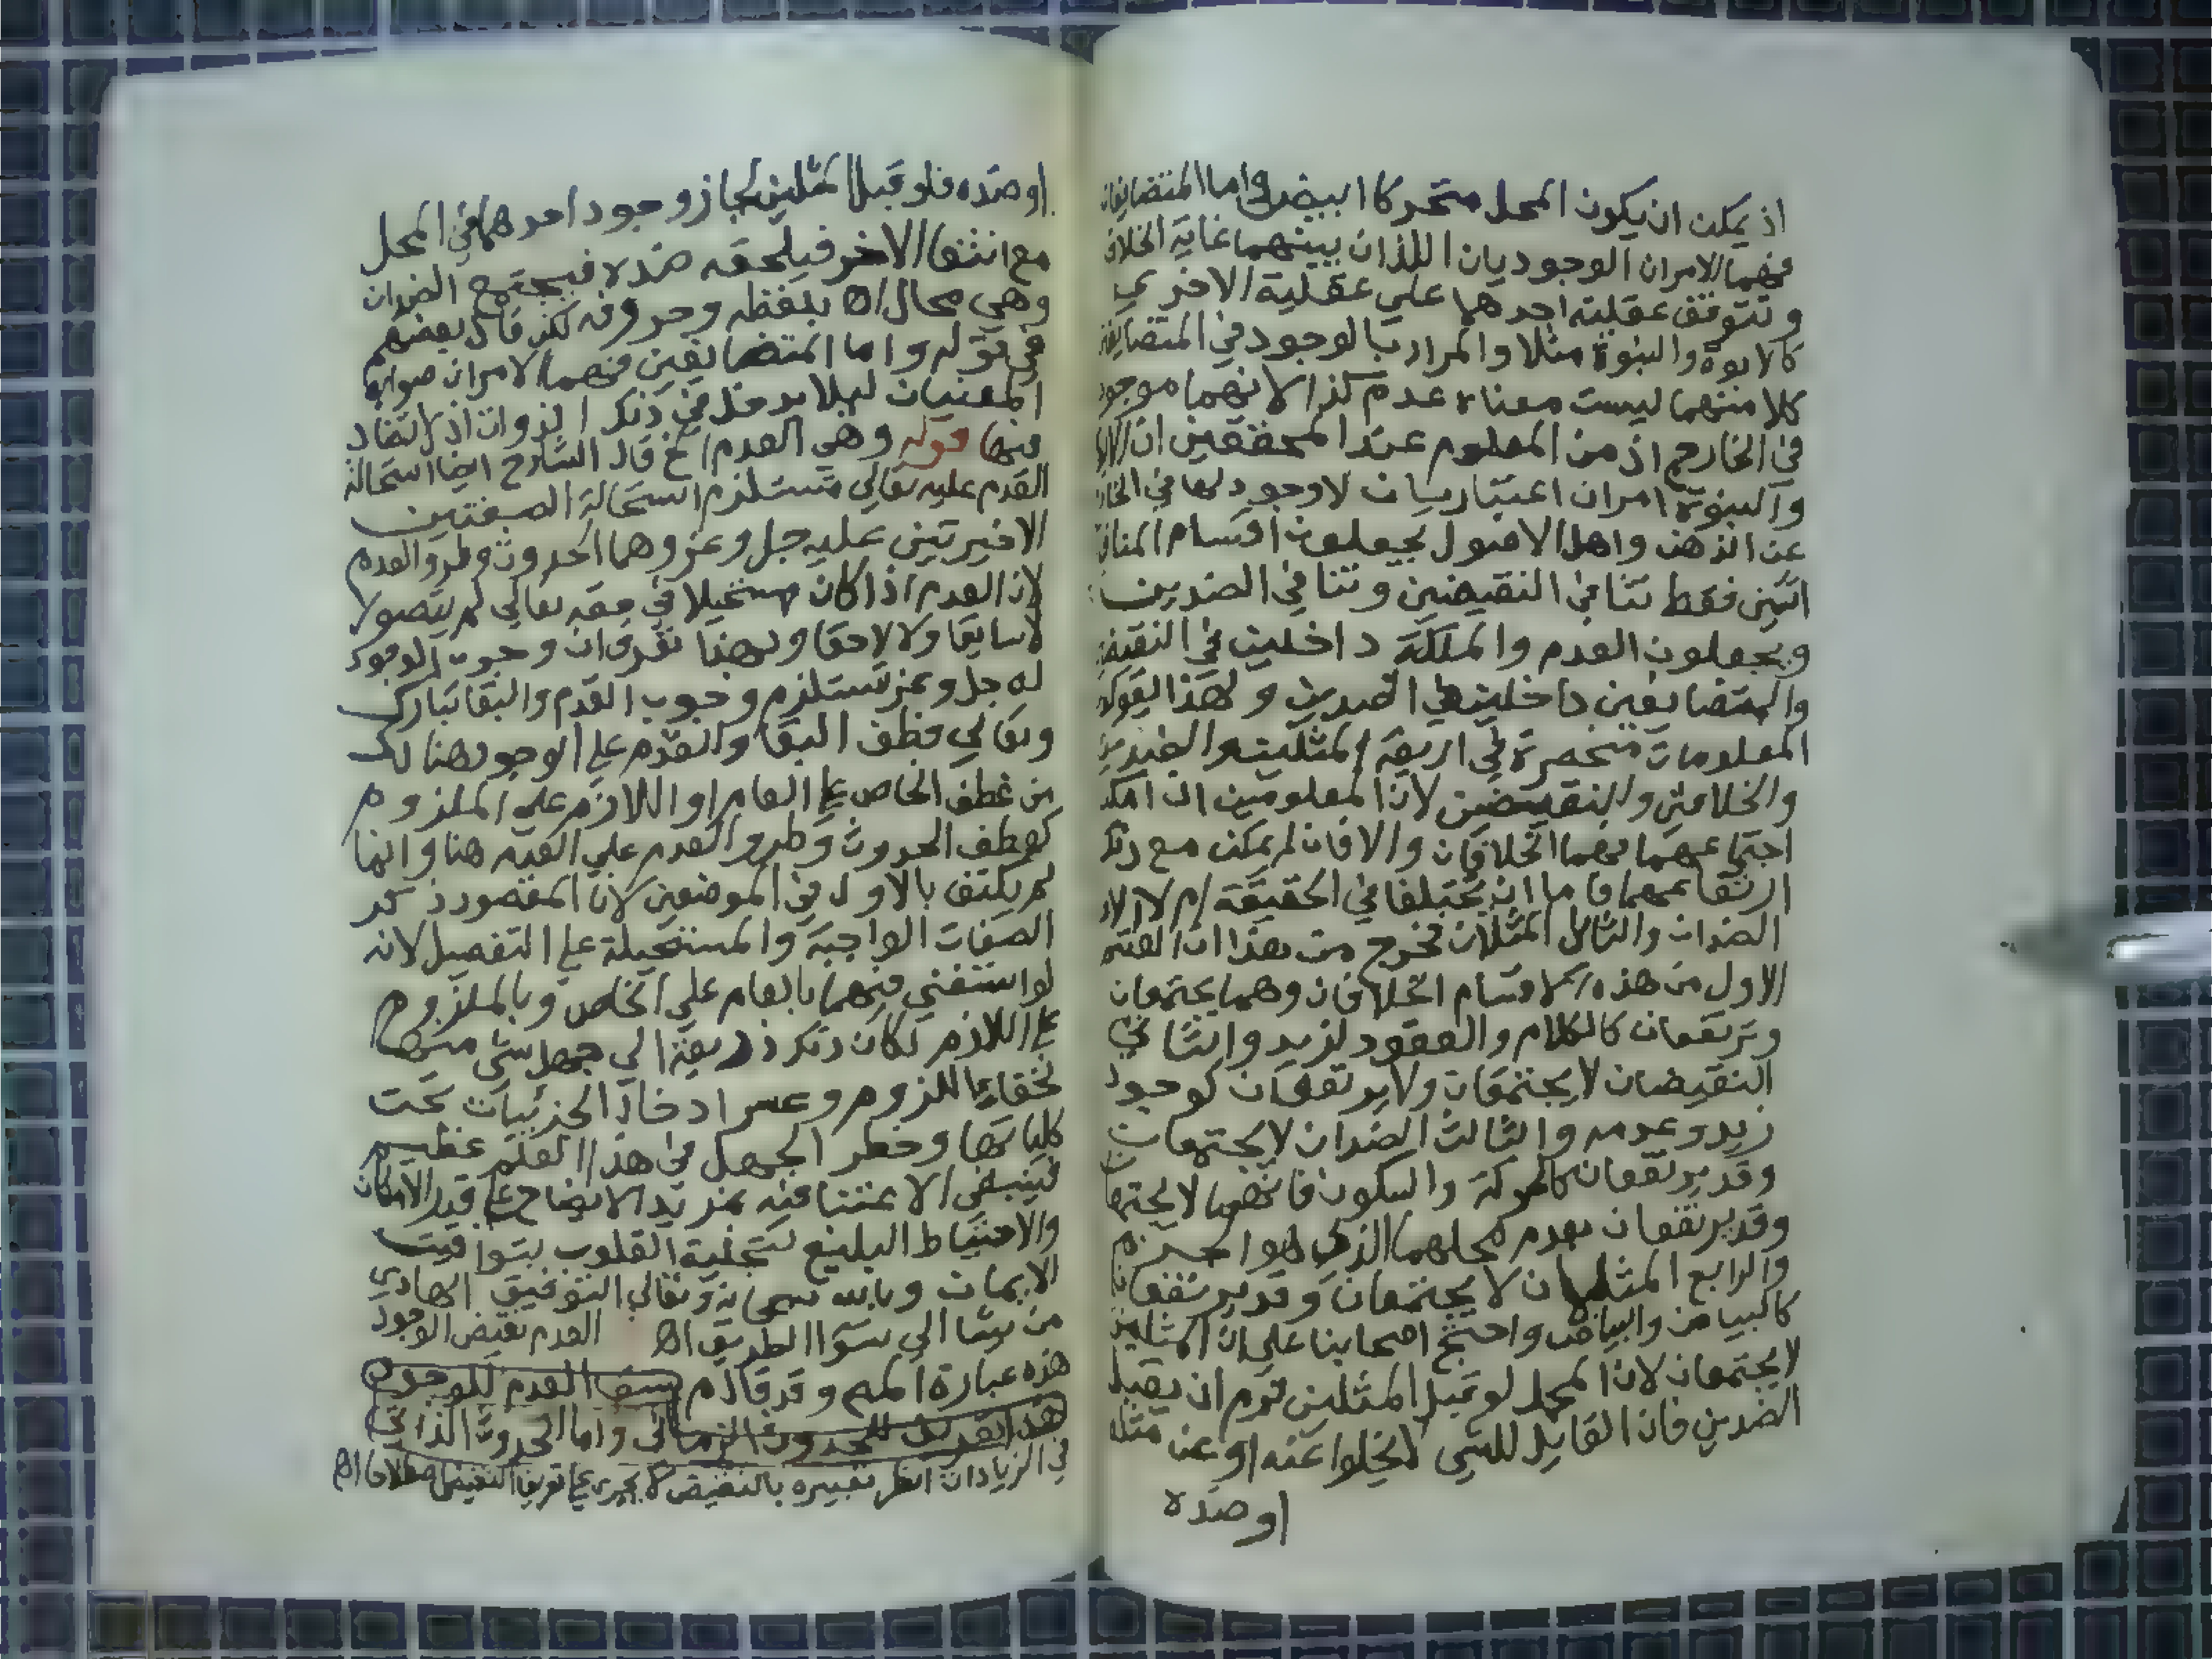 اذ يمكن ان يكون المحل متحركا ابيض واما المتضايفان
فهما الامران الوجوديان اللذان بينهما غاية الخلاف
وتتوقف عقلية احدهما علي عقلية الاخر
كالابوة والبنوة مثلا والمراد بالوجود في المتضايفين
كلا منهما ليست معناه عدم كذا لا انهما موجود
في الخارج اذ من المعلوم عند المحققين ان
والبنوة امران اعتباريان لا وجود لهما في
عن الذهن واهل الاصول يجعلون اقسام
اثنين فقط تنافي النقيضين وتنافي الضدين
ويجعلون العدم والملكة داخلين في
والمتضايفين داخلين في الضدين ولهذا يقولون
المعلومات منحصرة في اربعة المثلين والضدين
والخلافين والنقيضين لان المعلومين ان امكن
اجتماعهما فهما الخلافان والا فان لم يمكن مع ذلك
ارتفاعهما فاما ان يختلفا في الحقيقة ام لا
الضدان والثاني المثلان فخرج من هذا ان القسم
الاول من هذه الاقسام الخلافان وهما يجتمعان
وترتفعان كالكلام والقعود لزيد والثاني
النقيضان لا يجتمعان ولا يرتفعان كوجود
زيد وعدمه والثالث الضدان لا يجتمعان
وقد يرتفعان كالحركة والسكون فانهما لا يجتمعا
وقد يرتفعان بعدم محلهما الذي هو الجرم
والرابع المثلان لا يجتمعان وقد يرتفعان
كالبياض والبياض واحتج اصحابنا علي ان المثلين
لا يجتمعان لان المحل لو قبل المثلين لزم ان يقبل
الضدين فان القابل للشي لا يخلوا عنه او عن مثله
او ضده
او ضده فلو قبل المثلين لجاز وجود احدهما في المحل
مع انتفا الاخر فيلحقه ضده فيجتمع الضدان
وهي محال اه بلفظه وحروفه لكن قال بعضهم
في قوله واما المتضايفين فهما الامران صوابه
المعنيان ليلا يدخل في ذلك الذوات اذ لا تضاد
فيها قوله وهي العدم الخ قال الشارح ايضا استحالة
القدم عليه تعالي تستلزم استحالة الصفتين
الاخيرتين عليه جل وعز وهما الحدوث وطرو العدم
لان العدم اذا كان مستحيلا في حقه تعالي لم يتصولا
لا سابقا ولا لاحقا وبهذا تعرف ان وجوب الوجود
له جل وعز تستلزم وجوب القدم والبقا تبارك
وتعالي فطف البقا والقدم علي الوجود هنا لك
من عطف الخاص علي العام او اللازم علي الملزوم
كعطف الحدوث وطرو العدم علي العدم هنا وانما
لم يكتف بالاول في الموضعين لان المقصود ذكر
الصفات الواجبة والمستحيلة علي التفصيل لانه
لو استغني فيهما بالعام علي الخاص وبالملزوم
علي اللازم لكان ذلك ذريعة الي جهل شي منها
لخفا اللزوم وعسر ادخال الجزئيات تحت
كلياتها وخطر الجهل في هذا العلم عظيم
فينبغي الاعتنا فيه بمزيد الايضاح علي قدر الامكان
والاحتياط البليغ لتحلية القلوب بيواقيت
الايمان وبالله سبحانه وتعالي التوفيق الهادي
من يشا الي سوا الطريق اه العدم نقيض الوجود
هذه عبارة المص وقد قال م سبق العدم للوجود
هذا تعريف للحدوث الزماني واما الحدوث الذاتي
في الزيادات انظر تعبيره بالنقيض